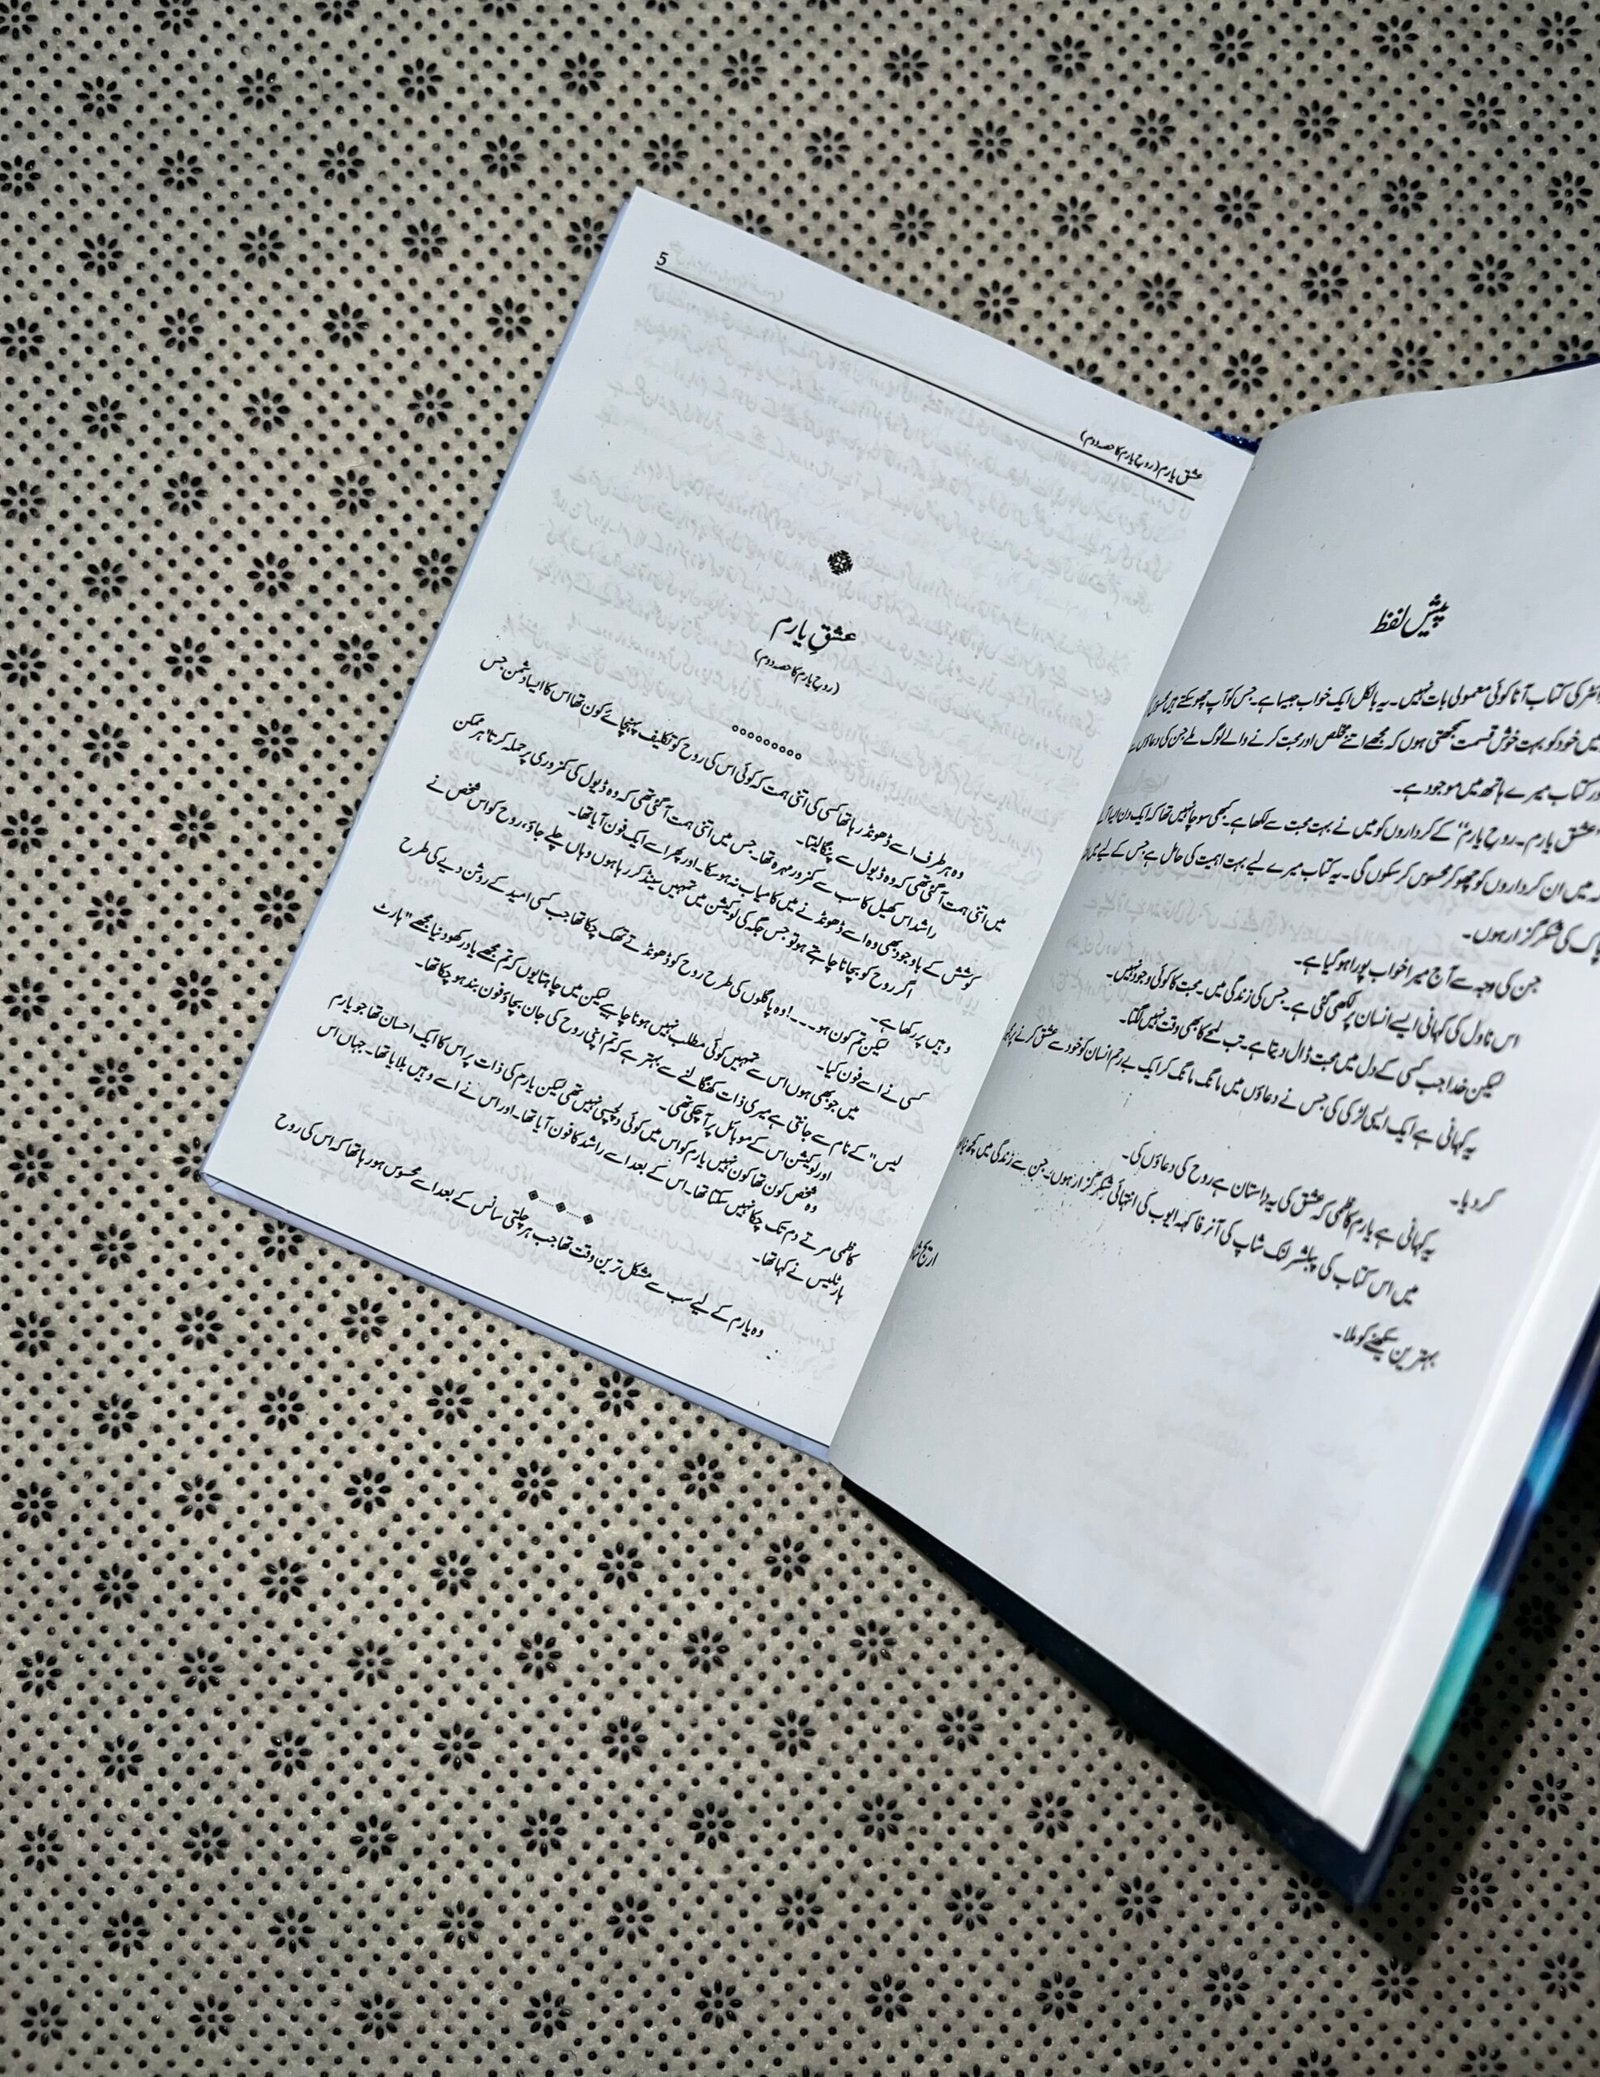 پیش لفظ
کی کتاب آنا کوئی معمولی بات نہیں۔ یہ بالکل ایک خواب جیسا ہے۔ جس کو آپ چھو سکتے ہیں
میں خود کو بہت خوش قسمت سمجھتی ہوں کہ مجھے اتنے مخلص اور محبت کرنے والے لوگ ملے جن کی دعاؤں سے
اور کتاب میرے ہاتھ میں موجود ہے۔
"عشق یارم۔ روح یارم" کے کرداروں کو میں نے بہت محبت سے لکھا ہے۔ کبھی سوچا نہیں تھا کہ ایک دن ایسا
کہ میں ان کرداروں کو چھو کر محسوس کر سکوں گی۔ یہ کتاب میرے لیے بہت اہمیت کی حامل ہے جس کے لیے میں
پاک کی شکر گزار ہوں۔
جن کی وجہ سے آج میرا خواب پورا ہو گیا ہے۔
اس ناول کی کہانی ایسے انسان پر لکھی گئی ہے۔ جس کی زندگی میں۔ محبت کا کوئی وجود نہیں۔
لیکن خدا جب کسی کے دل میں محبت ڈال دیتا ہے۔ تب لمحے کا بھی وقت نہیں لگتا۔
یہ کہانی ہے ایک ایسی لڑکی کی جس نے دعاؤں میں مانگ مانگ کر ایک بے رحم انسان کو خود سے عشق کرنے پر
کر دیا۔
یہ کہانی ہے یارم کاظمی کے عشق کی یہ داستان ہے روح کی دعاؤں کی۔
میں اس کتاب کی پبلشر لنک شاپ کی آنر فاکہہ ایوب کی انتہائی شکر گزار ہوں۔ جن سے زندگی میں کچھ
بہترین سیکھنے کو ملا۔
اریج
عشق یارم (روح یارم کا حصہ دوم)
5
عشقِ یارم
(روح یارم کا حصہ دوم)
وہ ہر طرف اسے ڈھونڈ رہا تھا کسی کی اتنی ہمت کہ کوئی اس کی روح کو تکلیف پہنچائے کون تھا اس کا ایسا دشمن جس
میں اتنی ہمت آ گئی تھی کہ وہ ڈیول سے پنگا لیتا۔
راشد اس کھیل کا سب سے کمزور مہرہ تھا۔ جس میں اتنی ہمت آ گئی تھی کہ وہ ڈیول کی کمزوری پر حملہ کرتا ہر ممکن
کوشش کے باوجود بھی وہ اسے ڈھونڈنے میں کامیاب نہ ہو سکا۔ اور پھر اسے ایک فون آیا تھا۔
اگر روح کو بچانا چاہتے ہو تو جس جگہ کی لوکیشن میں تمہیں سینڈ کر رہا ہوں وہاں چلے جاؤ، روح کو اس شخص نے
وہیں پر رکھا ہے۔
لیکن تم کون ہو۔۔۔! وہ پاگلوں کی طرح روح کو ڈھونڈتے تھک چکا تھا جب کسی امید کے روشن دیے کی طرح
کسی نے اسے فون کیا۔
میں جو بھی ہوں اس سے تمہیں کوئی مطلب نہیں ہونا چاہیے لیکن میں چاہتا ہوں کہ تم مجھے یاد رکھو دنیا مجھے "ہارٹ
لیس" کے نام سے جانتی ہے میری ذات کھنگالنے سے بہتر ہے کہ تم اپنی روح کی جان بچاؤ فون بند ہو چکا تھا۔
اور لوکیشن اس کے موبائل پر آ چکی تھی۔
وہ شخص کون تھا کون نہیں یارم کو اس میں کوئی دلچسپی نہیں تھی لیکن یارم کی ذات پر اس کا ایک احسان تھا جو یارم
کاظمی مرتے دم تک چکا نہیں سکتا تھا۔ اس کے بعد اسے راشد کا فون آیا تھا۔ اور اس نے اسے وہیں بلایا تھا۔ جہاں اس
ہارٹلیس نے کہا تھا۔
وہ یارم کے لیے سب سے مشکل ترین وقت تھا جب ہر چلتی سانس کے بعد اسے محسوس ہو رہا تھا کہ اس کی روح